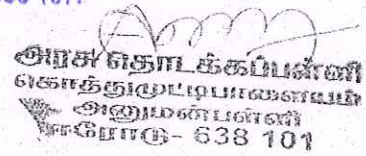 அரசு தொடக்கப்பள்ளி
கொத்துமுட்டிபாளையம்
அனுமன்பள்ளி
ஈரோடு- 638 101